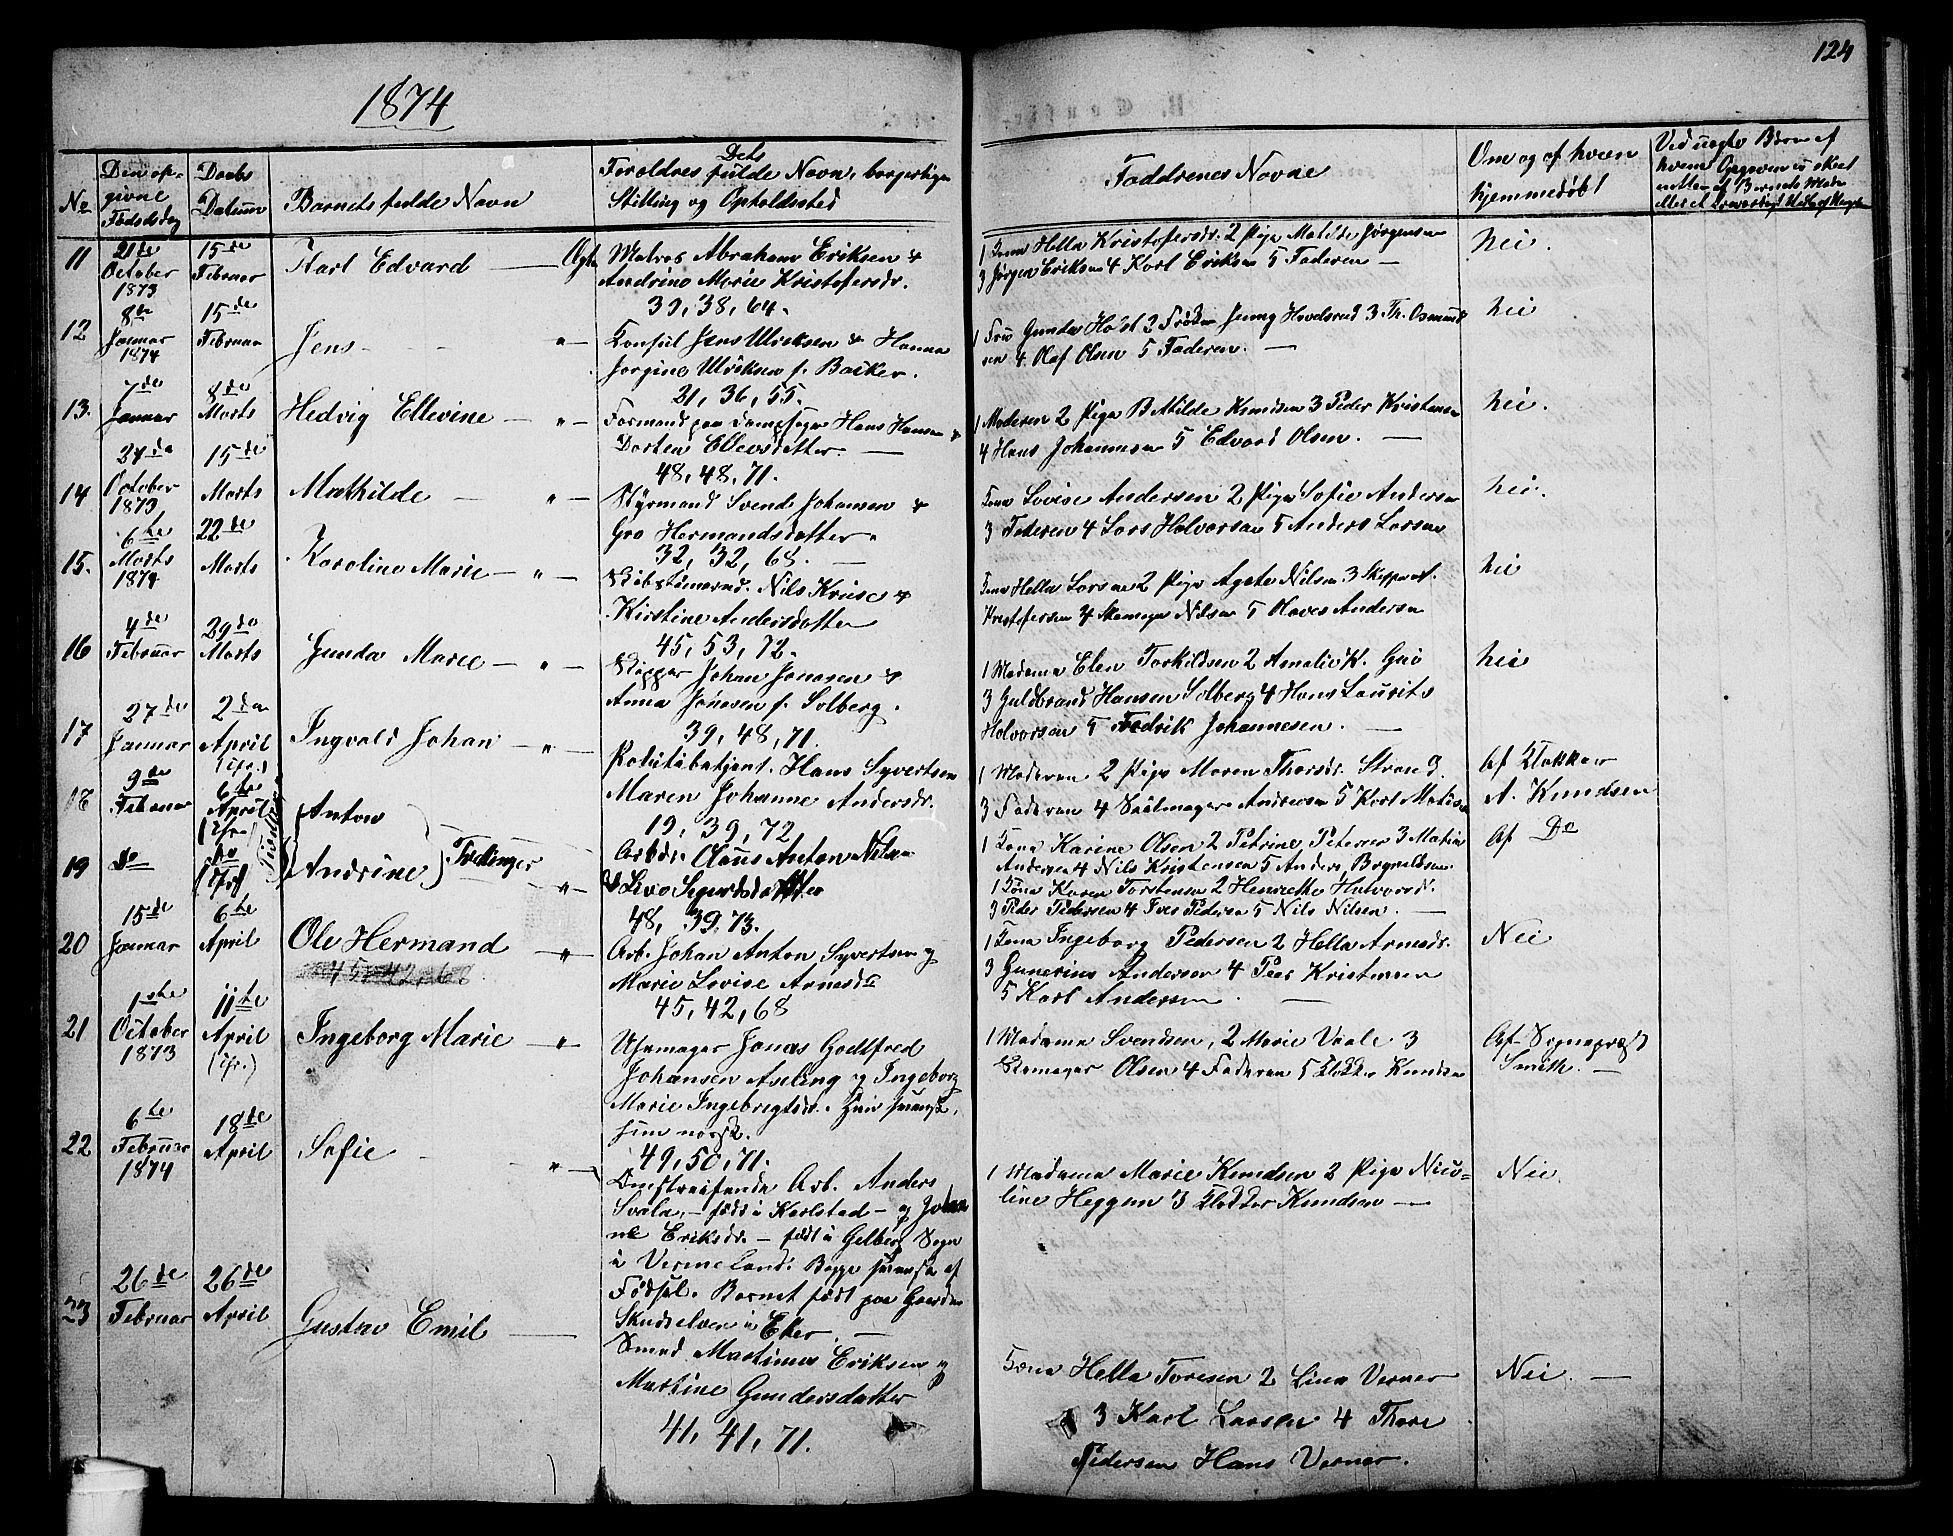 124
1874
No
Den op-
givne
Fødselsdag
Daabs
Datum
Barnets fulde Navn
Dets
Forældres fulde Navn, borgerlige
Stilling og Opholdssted
Faddrenes Navne
Om og af hvem
hjemmedøbt
Ved uægte Børn af
hvem Opgaven er skeet
enten af Barnets Moder
11
21de
October
1873
15de
Februar
Karl Edvard — Ægte
Matros Abraham Eriksen &
Andrine Marie Kristofersdr.
39, 38, 64.
1 Kona Hella Kristofersdr. 2 Pige Matilde Jørgensen
3 Jørgen Eriksen 4 Karl Eriksen 5 Faderen —
Nei.
12
8de
Januar
1874
15de
Februar
Jens — " —
Konsul Jens Ulriksen & Hanna
Jorgine Ulriksen f. Backer.
21, 36, 55.
1 Fru Gunda Holst 2 Frøken Jenny Hovelsrud 3 Th. Osmund
sen 4. Olaf Olsen 5 Faderen. —
Nei
13.
7de
Januar
8de
Marts
Hedvig Ellevine — " —
Formand paa Dampsagen Hans Hansen &
Dorten Ellevsdatter —
48, 48, 71.
1 Moderen 2 Pige B Matilde Knudsen 3 Peder Kristensen
4 Hans Johannesen 5 Edvard Olsen. —
Nei.
14
27de
October
1873
15de
Marts
Mathilde — " —
Styrmand Svend Johansen &
Gro Hermandsdatter.
32, 32, 68. —
Kona Lovise Andersen 2 Pige Sofie Andersen
3 Faderen 4 Lars Halvorsen 5 Anders Larsen
Nei.
15.
6te
Marts
1874
22de
Marts
Karoline Marie — " —
Skibstømmermd. Nils Kruse &
Kirstine Andersdatter
45, 53, 72.
Kona Hella Larsen 2 Pige Agete Nilsen 3 Skipper
Kristofersen 4 Skomager Nilsen 5 Olaves Andersen
Nei
16
4de
Februar
29de
Marts
Gunda Marie — " —
Skipper Johan Jonasen &
Anna Jonasen f. Solberg.
39, 48, 71.
1 Madama Elen Torkildsen 2 Amalie K. Gro
3 Guldbrand Hansen Solberg 4 Hans Laurits
Halvorsen 5 Fredrik Johannesen. —
Nei
17
27de
Januar
2den
April
Ingvald Johan — " —
Politibetjent. Hans Syvertsen
Maren Johanne Andersdr.
19, 39, 72
1 Moderen 2 Pige Maren Thorsdr. Strand
3 Faderen 4 Seilmager Andresen 5 Karl Matisen
Af Klokker
A. Knudsen
18
9de
Februar
6te
April
Anton
Tvillinger
Arbdr. Olaus Anton Nilsen
& Lise Sigurdsdatter
48, 39, 73.
1 Kona Karine Olsen 2 Petrine Petersen 3 Matin
Andersen 4 Nils Kristensen 5 Anders Brynildsen
Af Do
19
Do
Do
Andrine
" —
1 Kona Karen Torstensen 2 Henriette Halvorsd.
3 Peder Pedersen 4 Ives Pedersen 5 Nils Nilsen. —
20
15de
Januar
6te
April
Ole Hermand — " —
45, 42, 68
Arb. Johan Anton Syvertsen og
Marie Lovise Arnesdr
45, 42, 68
1 Kona Ingeborg Pedersen 2 Hella Arnesdr.
3 Gunerius Andersen 4 Peer Kristensen
5 Karl Andersen. —
Nei
21
1ste
October
1873
11te
April
Ingeborg Marie — " —
Uhrmager Jonas Godtfred
Johansen Aseling og Ingeborg
Marie Ingebregtsdr. Han svensk,
hun norsk.
49, 50, 71.
1 Madama Svendsen, 2 Marie Vaale 3
Skomager Olsen 4 Faderen 5 Klokker Knudsen
Af Sognepræst
Smith. —
22
6te
Februar
1874
18de
April
Sofie — " —
Omstreifende Arb. Anders
Svala, — født i Karlstad — og Johan
ne Eriksdr. — født i Gelberg Sogn
i Vermeland. Begge svenske af
Fødsel. Barnet født paa Gaarden
Skudselven i Eker. —
1 Madama Marie Knudsen 2 Pige Nico-
line Heggen 3 Klokker Knudsen —
Nei.
23
26de
Februar
26de
April
Gustav Emil —
Smed Martinus Eriksen og
Martine Gundersdatter
41, 41, 71.
Kona Hella Toresen 2 Lina Verner
3 Karl Larsen 4 Thore
Pedersen Hans Verner.
Nei. —